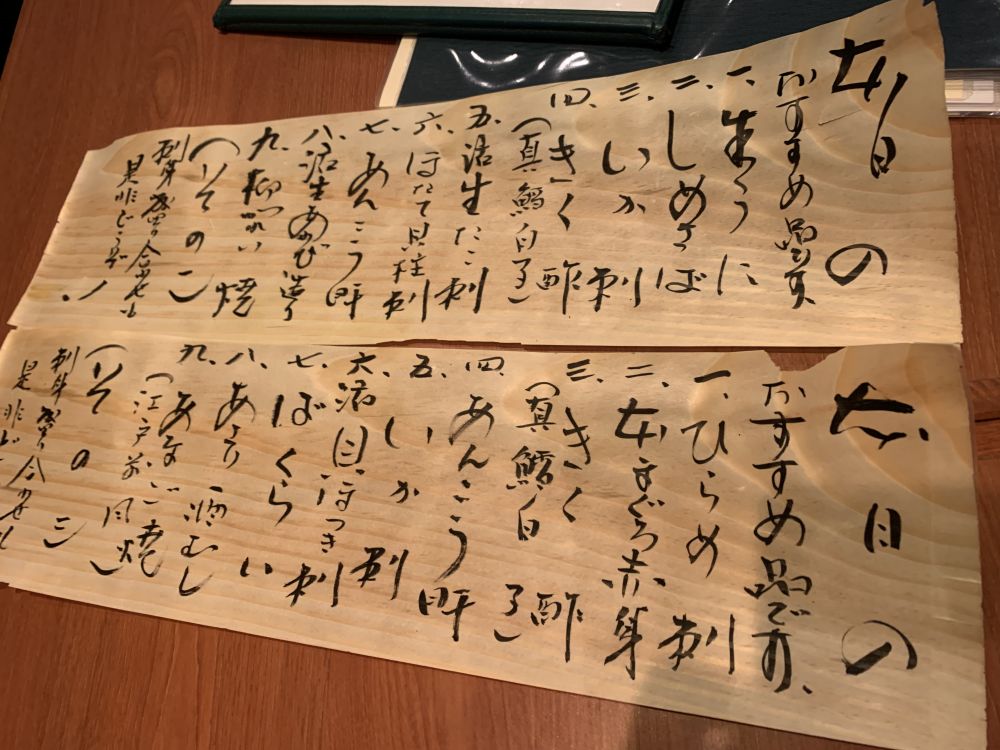 本日の
おすすめ品です、
一、生うに
二、しめさば
三、いか刺
四、きく酢
(真鱈白子)
五、活生たこ刺
六、ほたて貝柱刺
七、あんこう肝
八、活生あわび造り
九、柳かれい焼
(その二)
刺身盛り合わせも
是非どうぞ
本日の
おすすめ品です、
一、ひらめ刺
二、本まぐろ赤身
三、きく酢
(真鱈白子)
四、あんこう肝
五、いか刺
六、活目ほっき刺
七、ばくらい
八、あさり酒むし
九、あなご焼
(江戸前風)
(その三
刺身盛り合わせも
是非ど